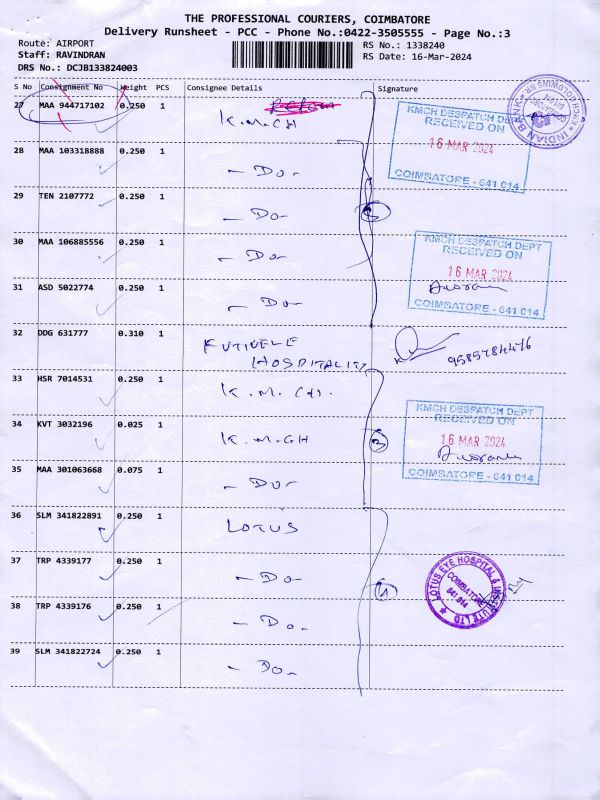 THE PROFESSIONAL COURIERS, COIMBATORE
Delivery Runsheet - PCC - Phone No.:0422-3505555 - Page No.:3
Route: AIRPORT
RS No.: 1338240
Staff: RAVINDRAN
RS Date: 16-Mar-2024
DRS No.: DCJB133824003
S No Consignment No Weight PCS Consignee Details Signature
27 MAA 944717102 0.250 1 K.M.CH
KMCH DESPATCH DEPT
RECEIVED ON
16 MAR 2024
COIMBATORE - 641 014
INDIAN BANK
28 MAA 103318888 0.250 1 - Do -
29 TEN 2107772 0.250 1 - Do -
5
30 MAA 106885556 0.250 1 - Do -
KMCH DESPATCH DEPT
RECEIVED ON
16 MAR 2024
COIMBATORE - 641 014
31 ASD 5022774 0.250 1 - Do -
32 DDG 631777 0.310 1
HOSPITALITY
33 HSR 7014531 0.250 1 K.M.CH.
34 KVT 3032196 0.025 1 K.M.CH
3
KMCH DESPATCH DEPT
RECEIVED ON
16 MAR 2024
COIMBATORE - 641 014
35 MAA 301063668 0.075 1 - Do -
36 SLM 341822891 0.250 1 LOTUS
37 TRP 4339177 0.250 1 - Do -
4
LOTUS EYE HOSPITAL & INSTITUTE LTD
COIMBATORE
641 014
38 TRP 4339176 0.250 1 - Do -
39 SLM 341822724 0.250 1 - Do -